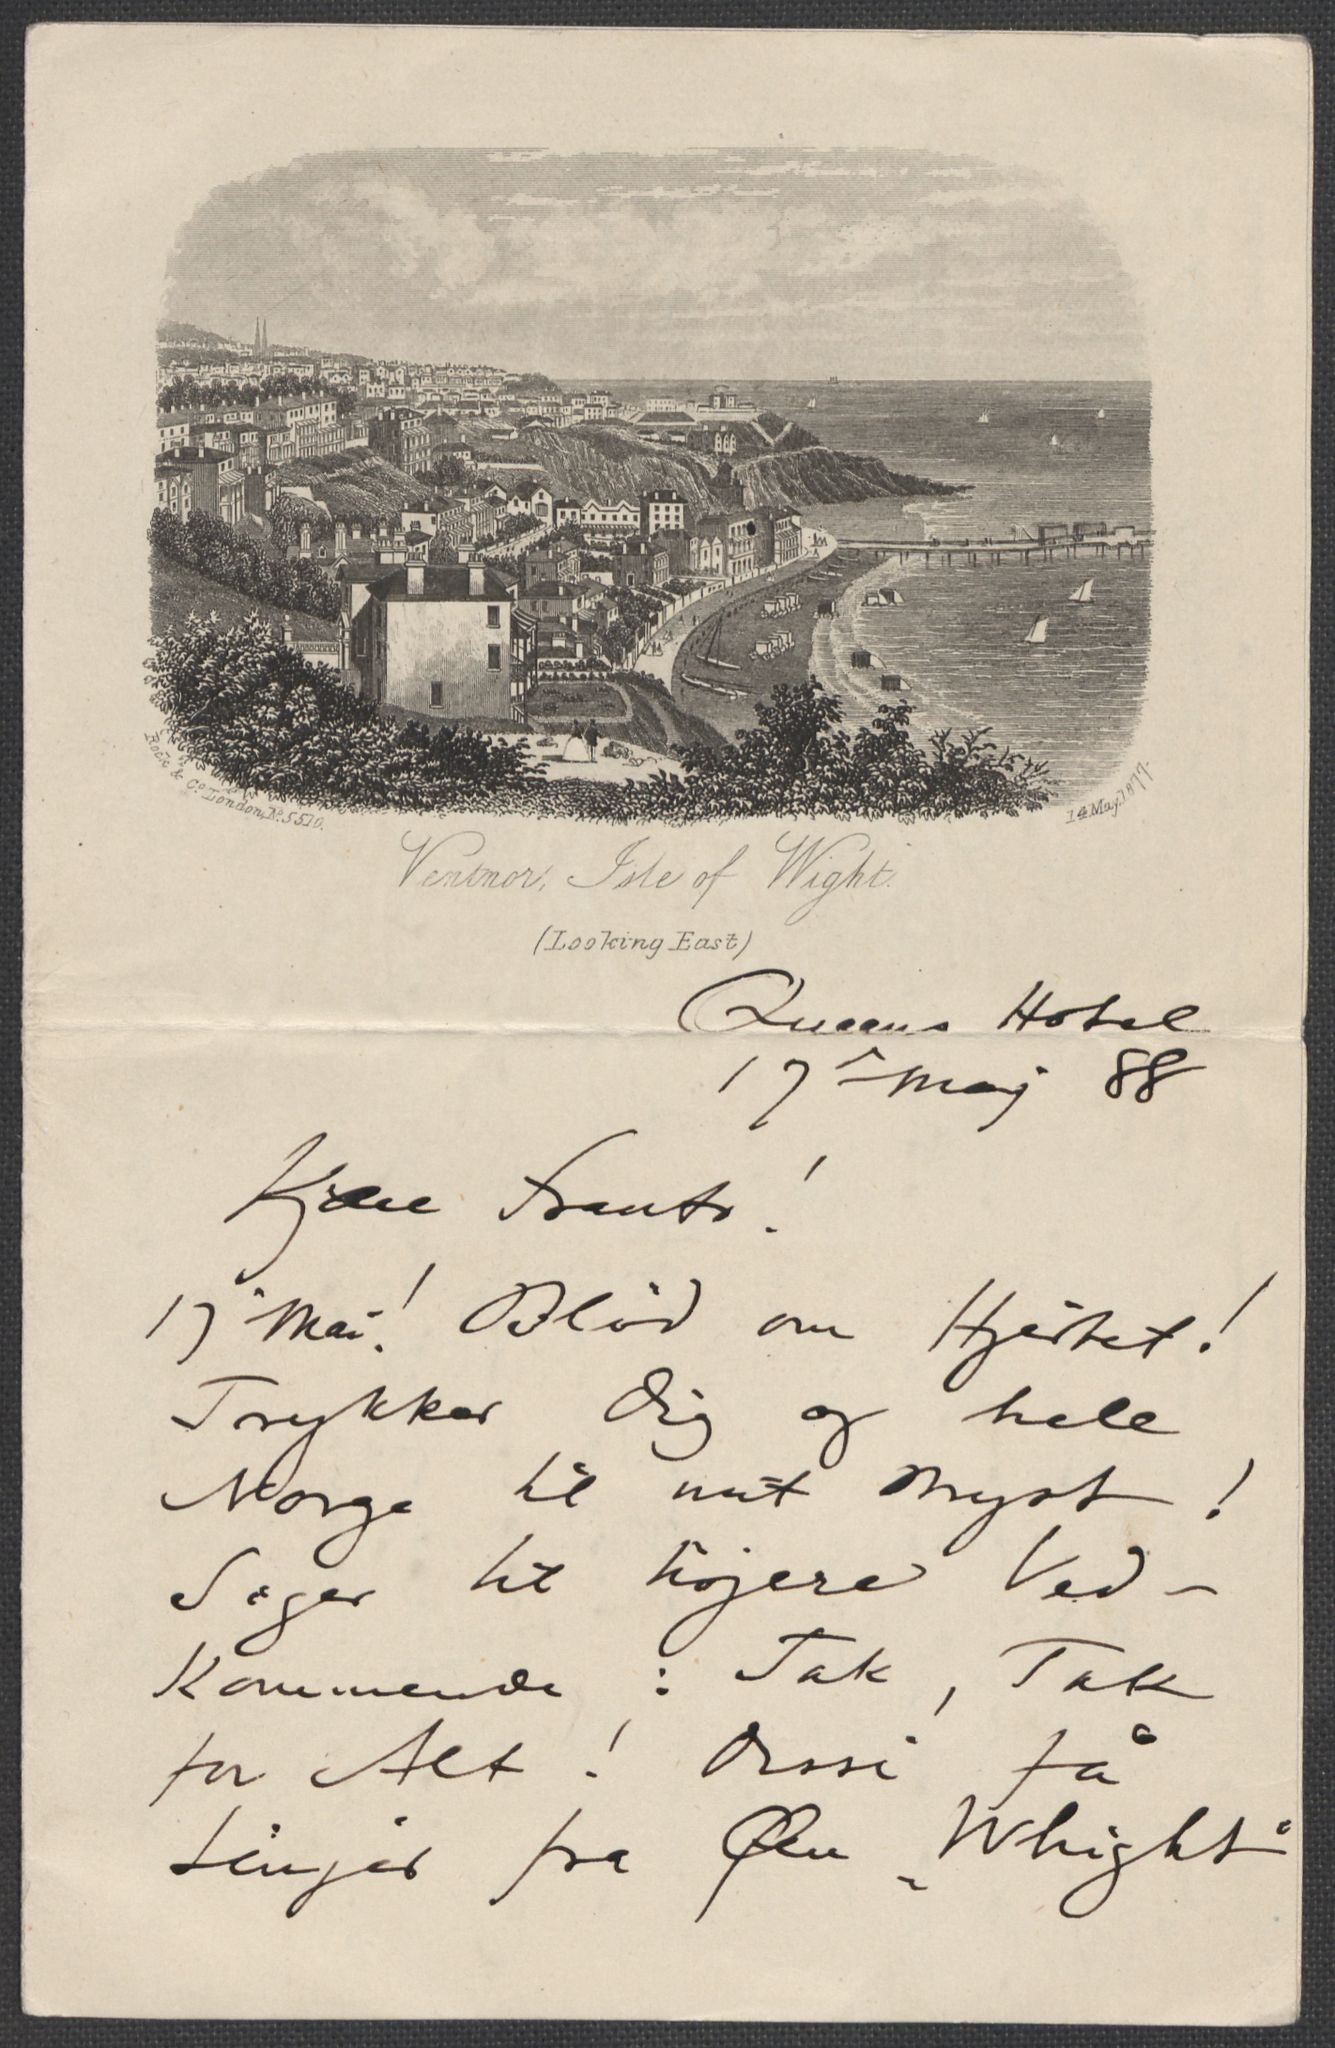 Rock & Co. London, No. 5510.
14 May 1877.
Ventnor, Isle of Wight.
(Looking East)
Queens Hotel
17de Maj 88
Kjære Frants!
17de Mai! Blöd om Hjertet!
Trykker Dig og hele
Norge til mit Bryst!
Siger til höjere Ved-
kommende: Tak, Tak
for Alt! Disse få
Linjer fra Øen „Whight“